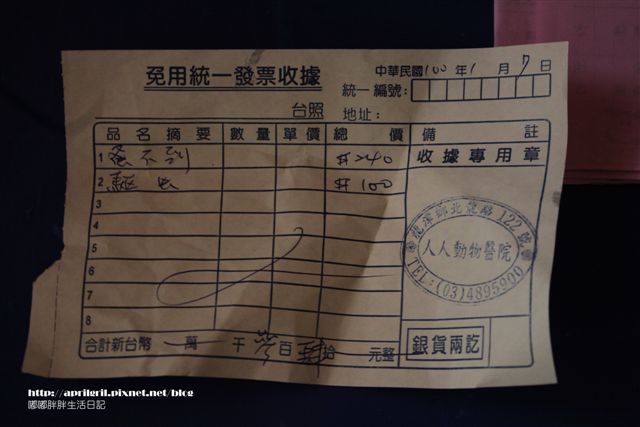 免用統一發票收據
中華民國100年1月7日
統一編號:
台照
地址:
品名摘要 數量 單價 總價 備註
1 蚤不到 $240
收據專用章
2 驅虫 $100
3
4
5
6
7
8
龍潭鄉北龍路122號
人人動物醫院
TEL:(03)4895900
合計新台幣 萬 千 百 拾 元整
銀貨兩訖
http://aprilgril.pixnet.net/blog
嘟嘟胖胖生活日記